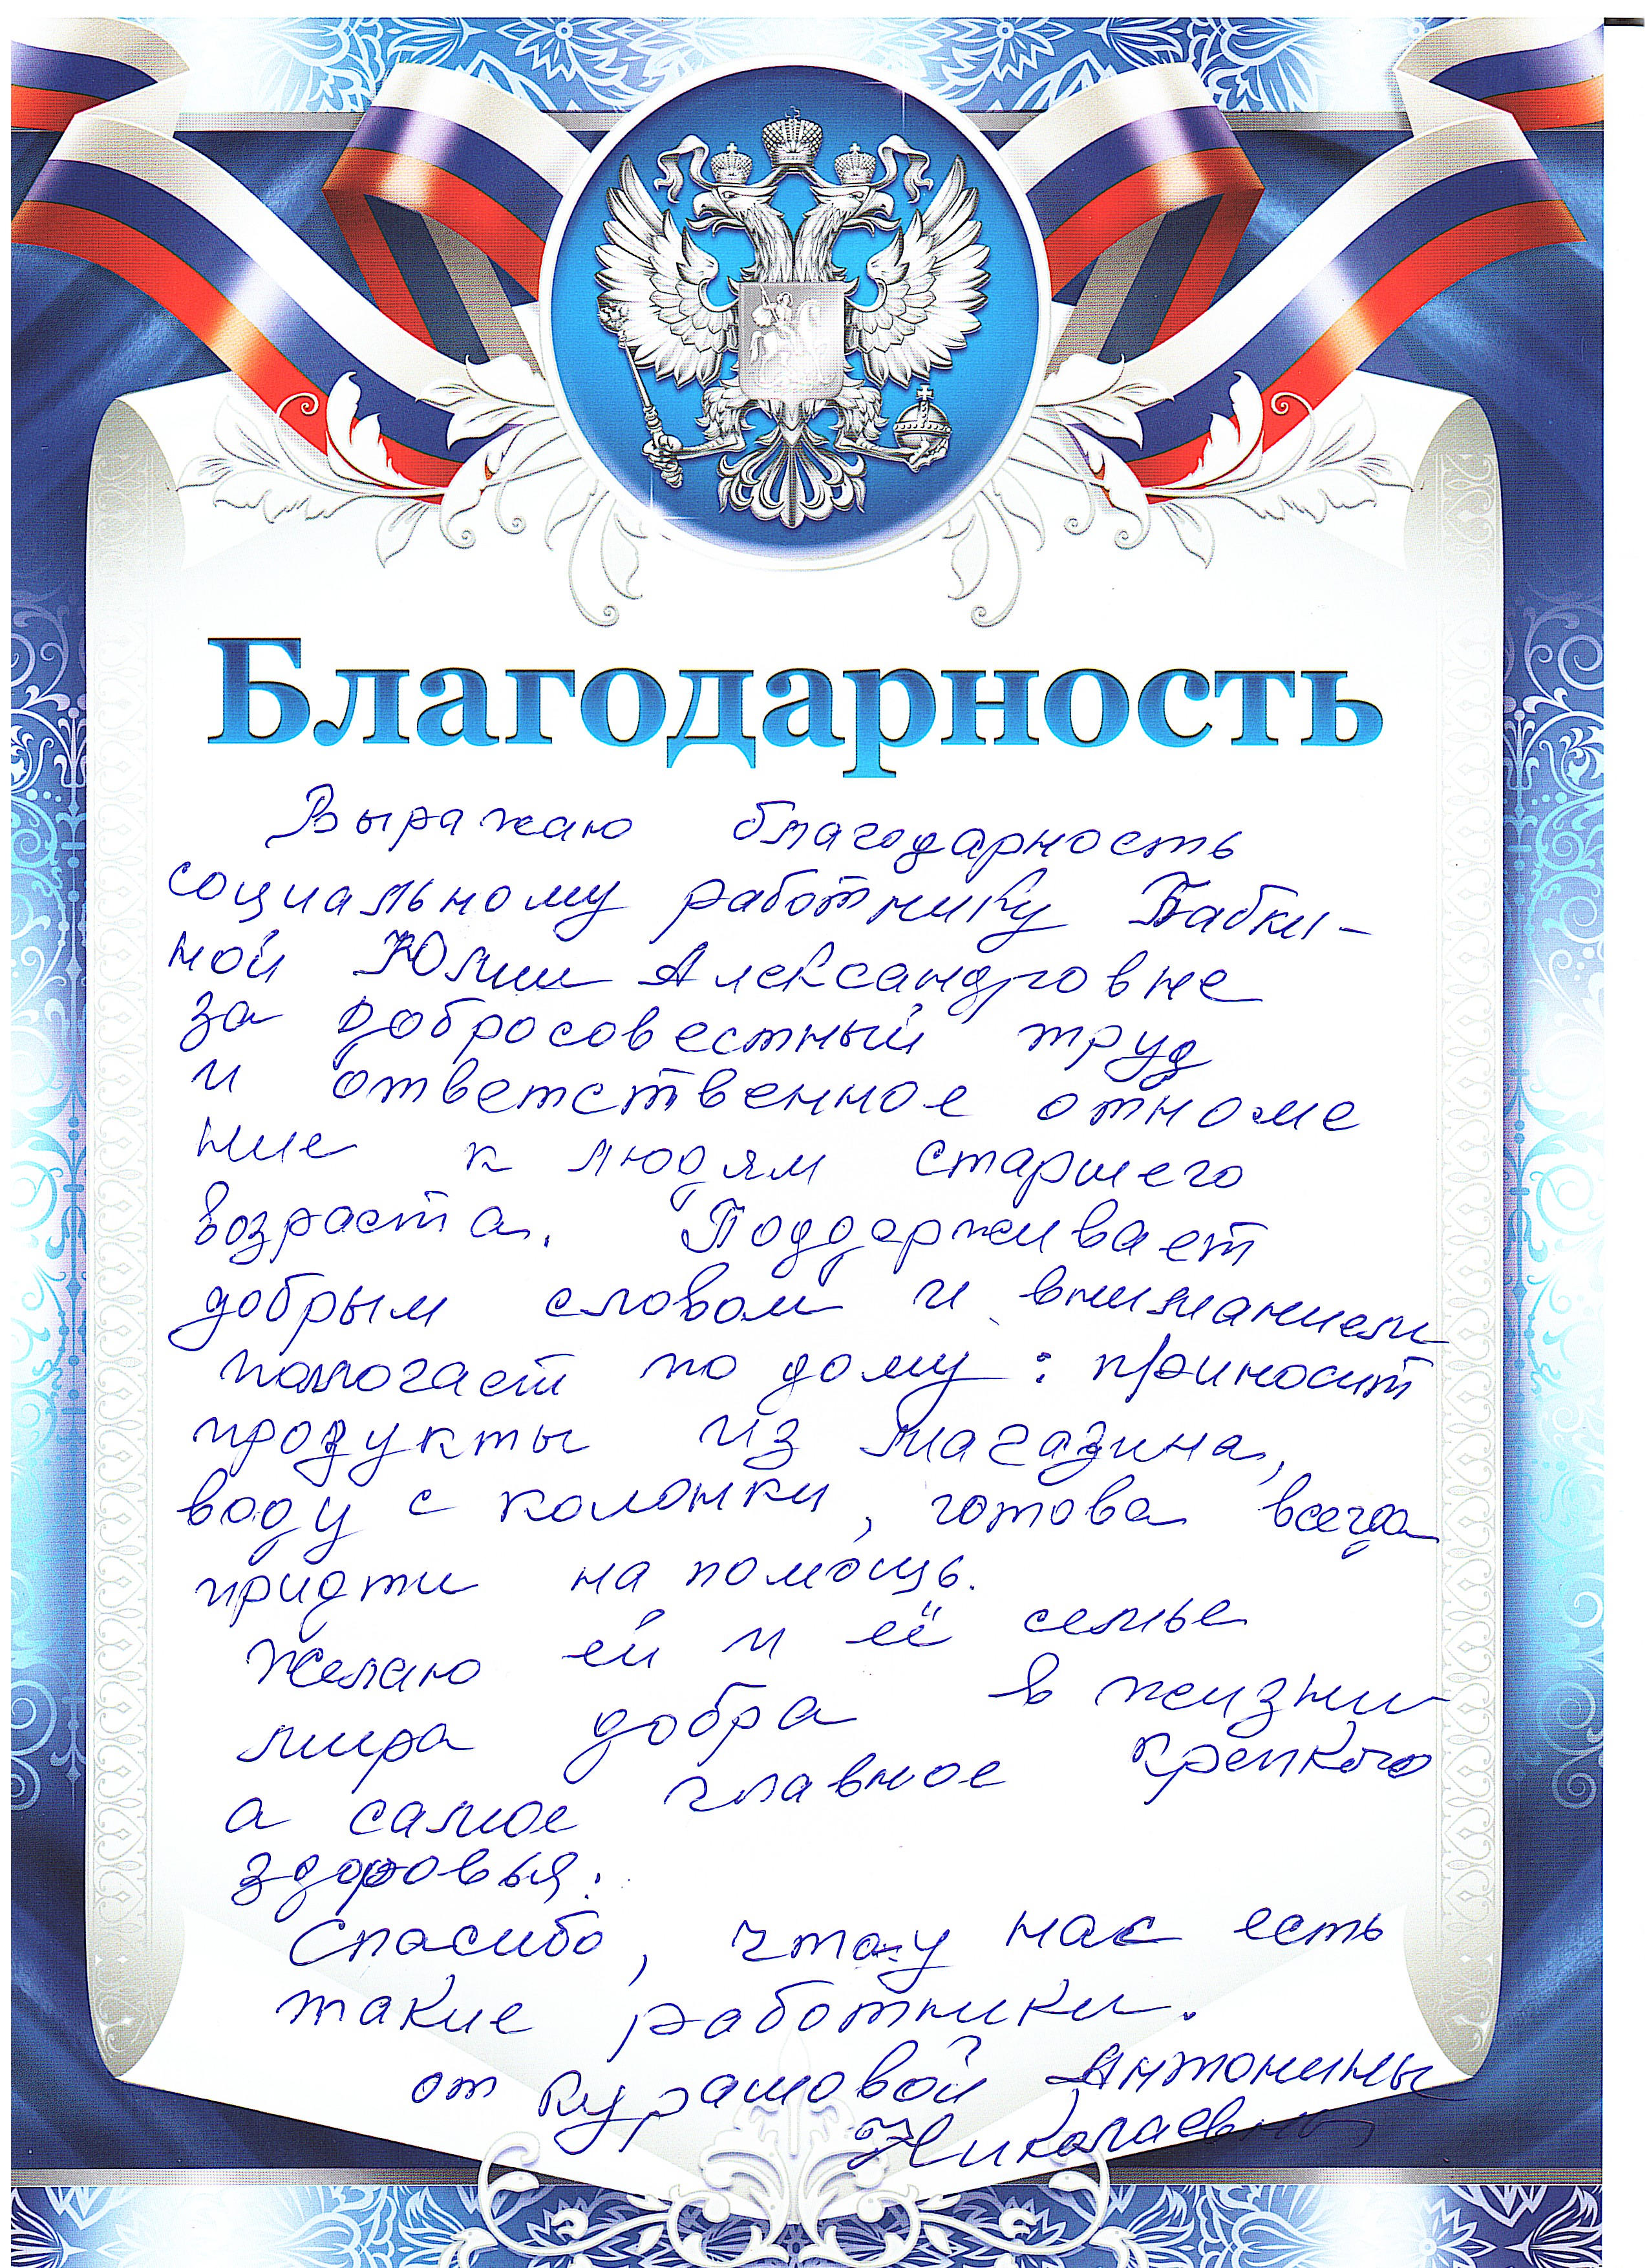 Благодарность
Выражаю благодарность
социальному работнику Бабки-
ной Юлии Александровне
за добросовестный труд
и ответственное отноше
ние к людям старшего
возраста. Поддерживает
добрым словом и вниманием
помогает по дому: приносит
продукты из магазина,
воду с колонки, готова всегда
придти на помощь.
Желаю ей и её семье
мира добра в жизни
а самое главное крепкого
здоровья.
Спасибо, что у нас есть
такие работники.
от Курашовой Антонины
Николаевны